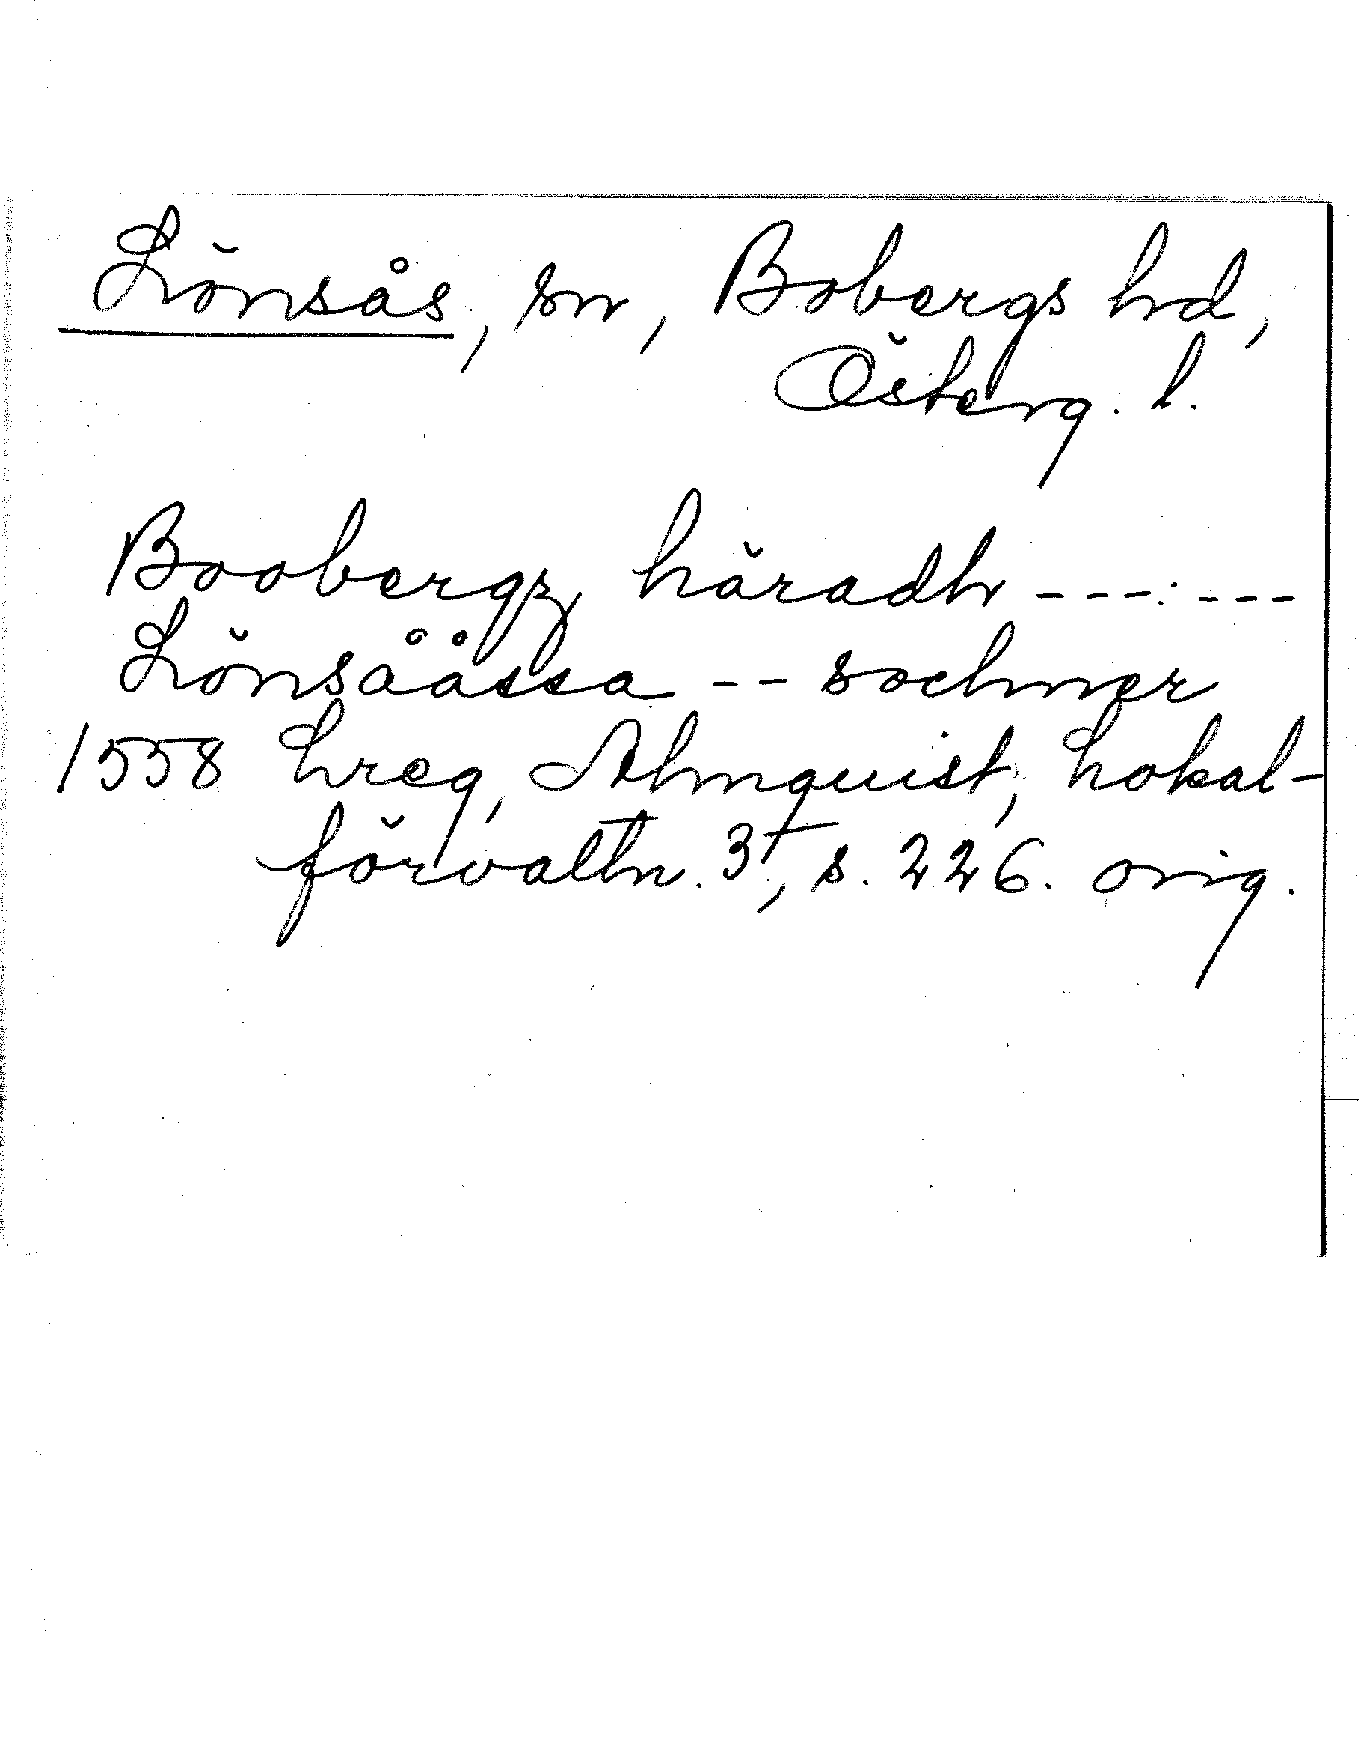 Lönsås, sn, Bobergs hd,
Österg. l.
Boobergz häradh ---:---
Lönsååssa -- sochner
1558 Lreg, Almquist, Lokal-
förvaltn. 3, s. 226. orig.